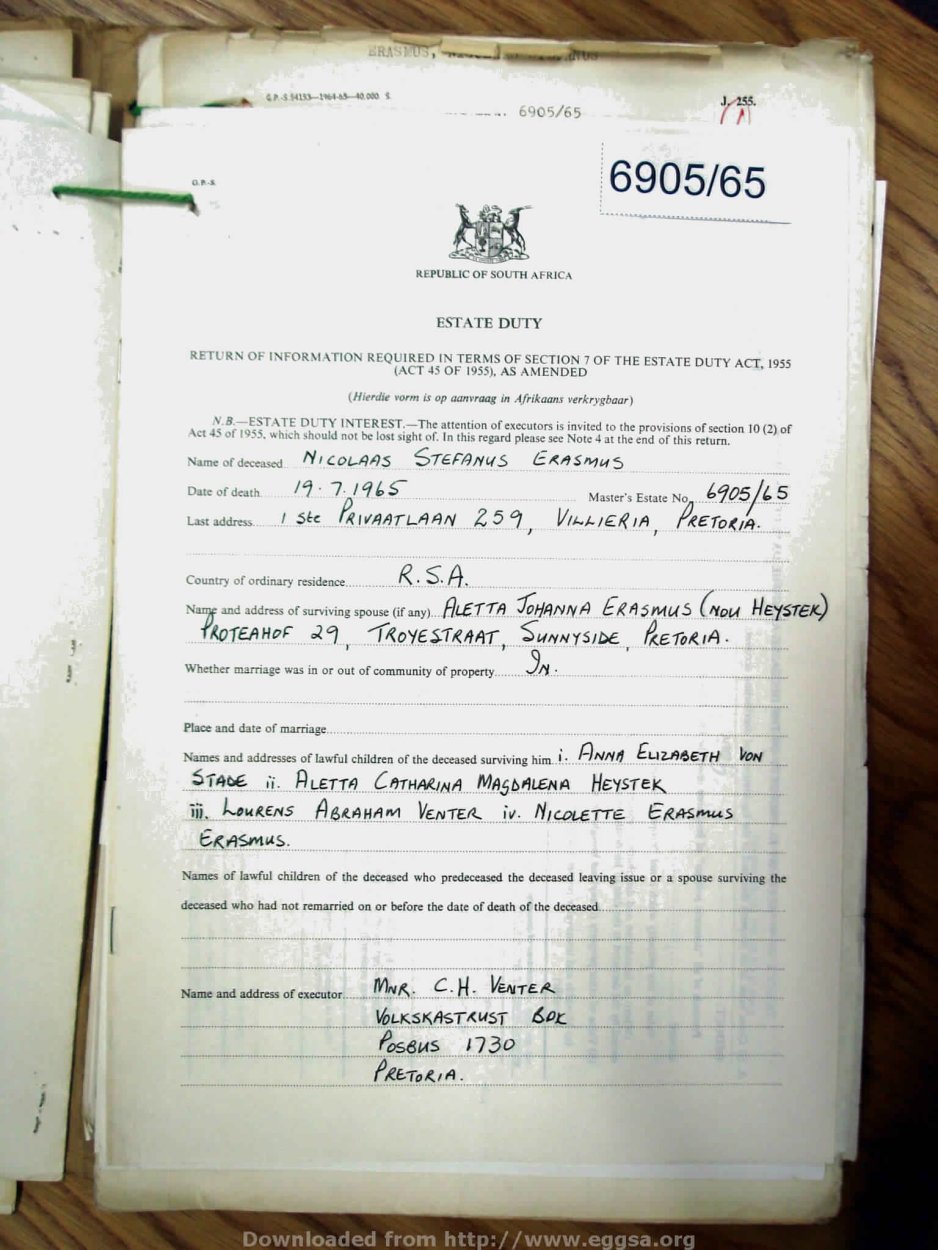 ERASMUS,
G.P.-S.54153—1964-65—40,000. S.
6905/65
J. 255.
G.P.-S.
6905/65
REPUBLIC OF SOUTH AFRICA
ESTATE DUTY
RETURN OF INFORMATION REQUIRED IN TERMS OF SECTION 7 OF THE ESTATE DUTY ACT, 1955
(ACT 45 OF 1955), AS AMENDED
(Hierdie vorm is op aanvraag in Afrikaans verkrygbaar)
N.B.—ESTATE DUTY INTEREST.—The attention of executors is invited to the provisions of section 10 (2) of
Act 45 of 1955, which should not be lost sight of. In this regard please see Note 4 at the end of this return.
Name of deceased NICOLAAS STEFANUS ERASMUS
Date of death 19.7.1965 Master's Estate No. 6905/65
Last address 1 ste PRIVAATLAAN 259, VILLIERIA, PRETORIA.
Country of ordinary residence R.S.A.
Name and address of surviving spouse (if any) ALETTA JOHANNA ERASMUS (NOU HEYSTEK)
PROTEAHOF 29, TROYESTRAAT, SUNNYSIDE, PRETORIA.
Whether marriage was in or out of community of property IN.
Place and date of marriage
Names and addresses of lawful children of the deceased surviving him i. ANNA ELIZABETH VON
STADE ii. ALETTA CATHARINA MAGDALENA HEYSTEK
iii. LOURENS ABRAHAM VENTER iv. NICOLETTE ERASMUS
ERASMUS.
Names of lawful children of the deceased who predeceased the deceased leaving issue or a spouse surviving the
deceased who had not remarried on or before the date of death of the deceased
Name and address of executor MNR. C.H. VENTER
VOLKSKASTRUST BPK
POSBUS 1730
PRETORIA.
Downloaded from http://www.eggsa.org